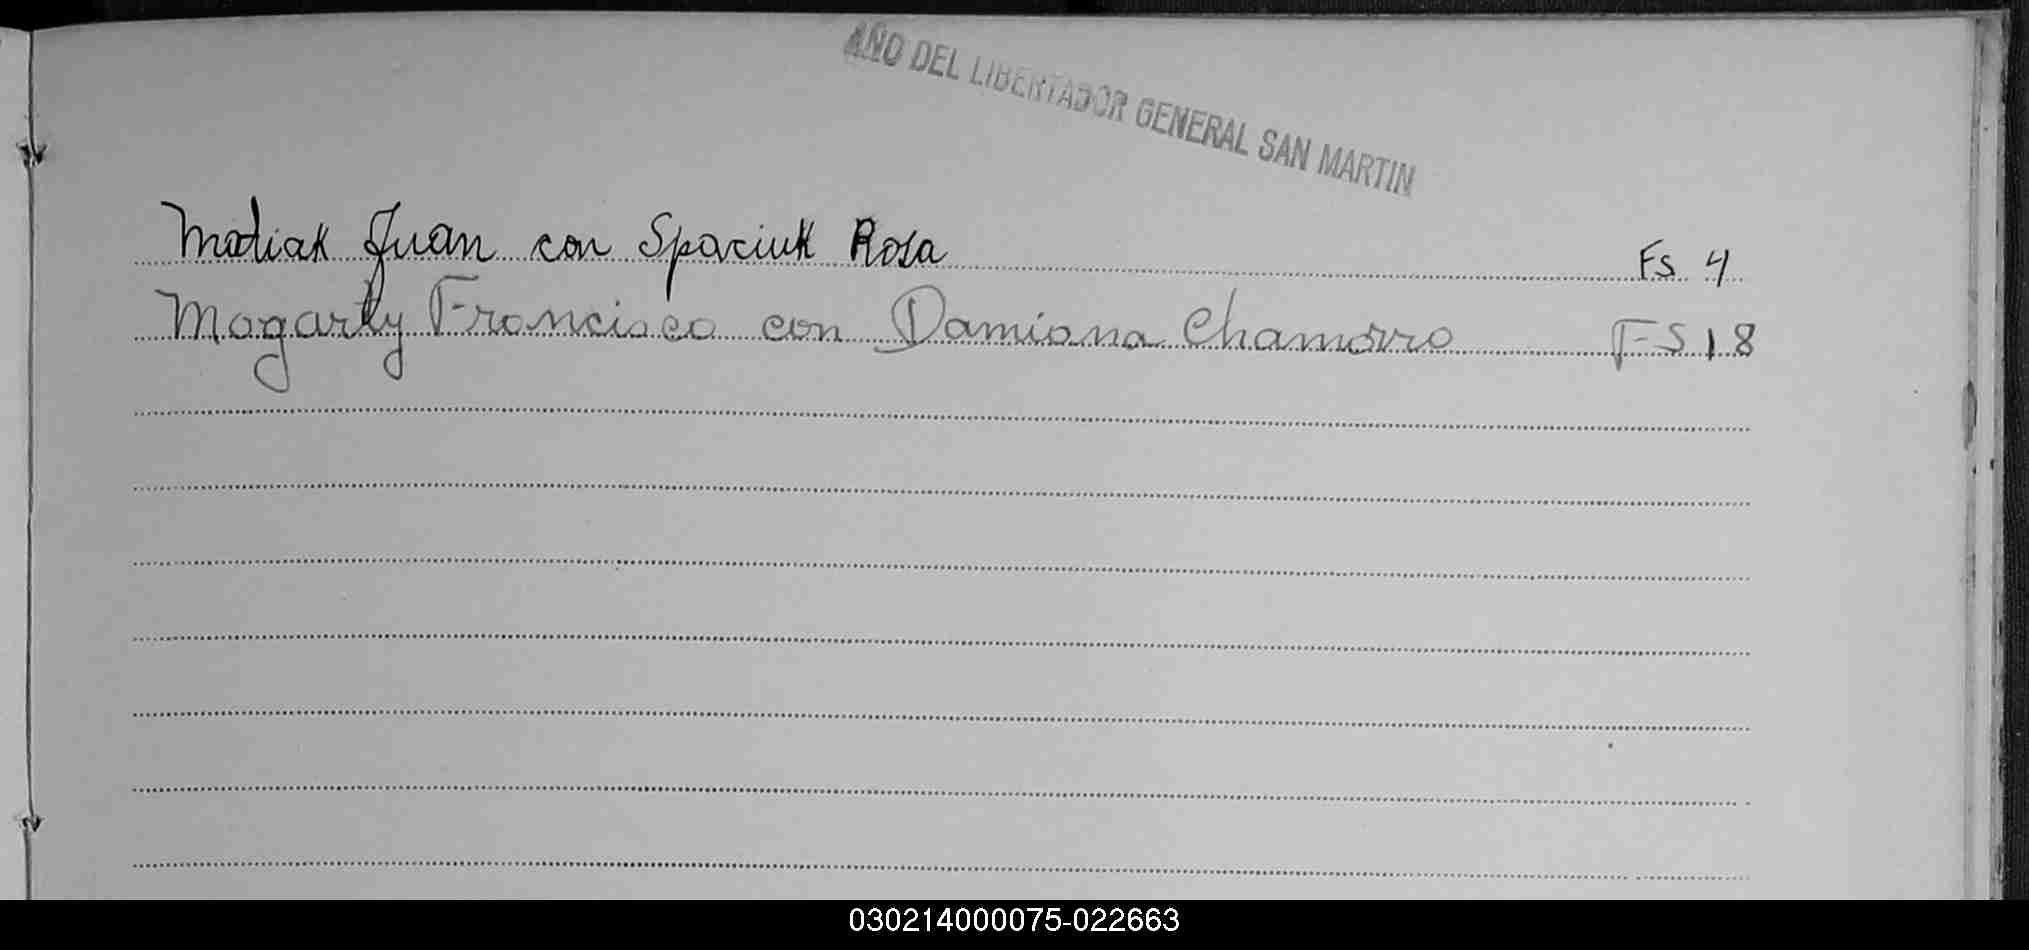 AÑO DEL LIBERTADOR GENERAL SAN MARTIN
Madiak Juan con Spaciuk Rosa Fs 4
Mogarty Francisco con Damiana Chamorro FS 18
030214000075-022663